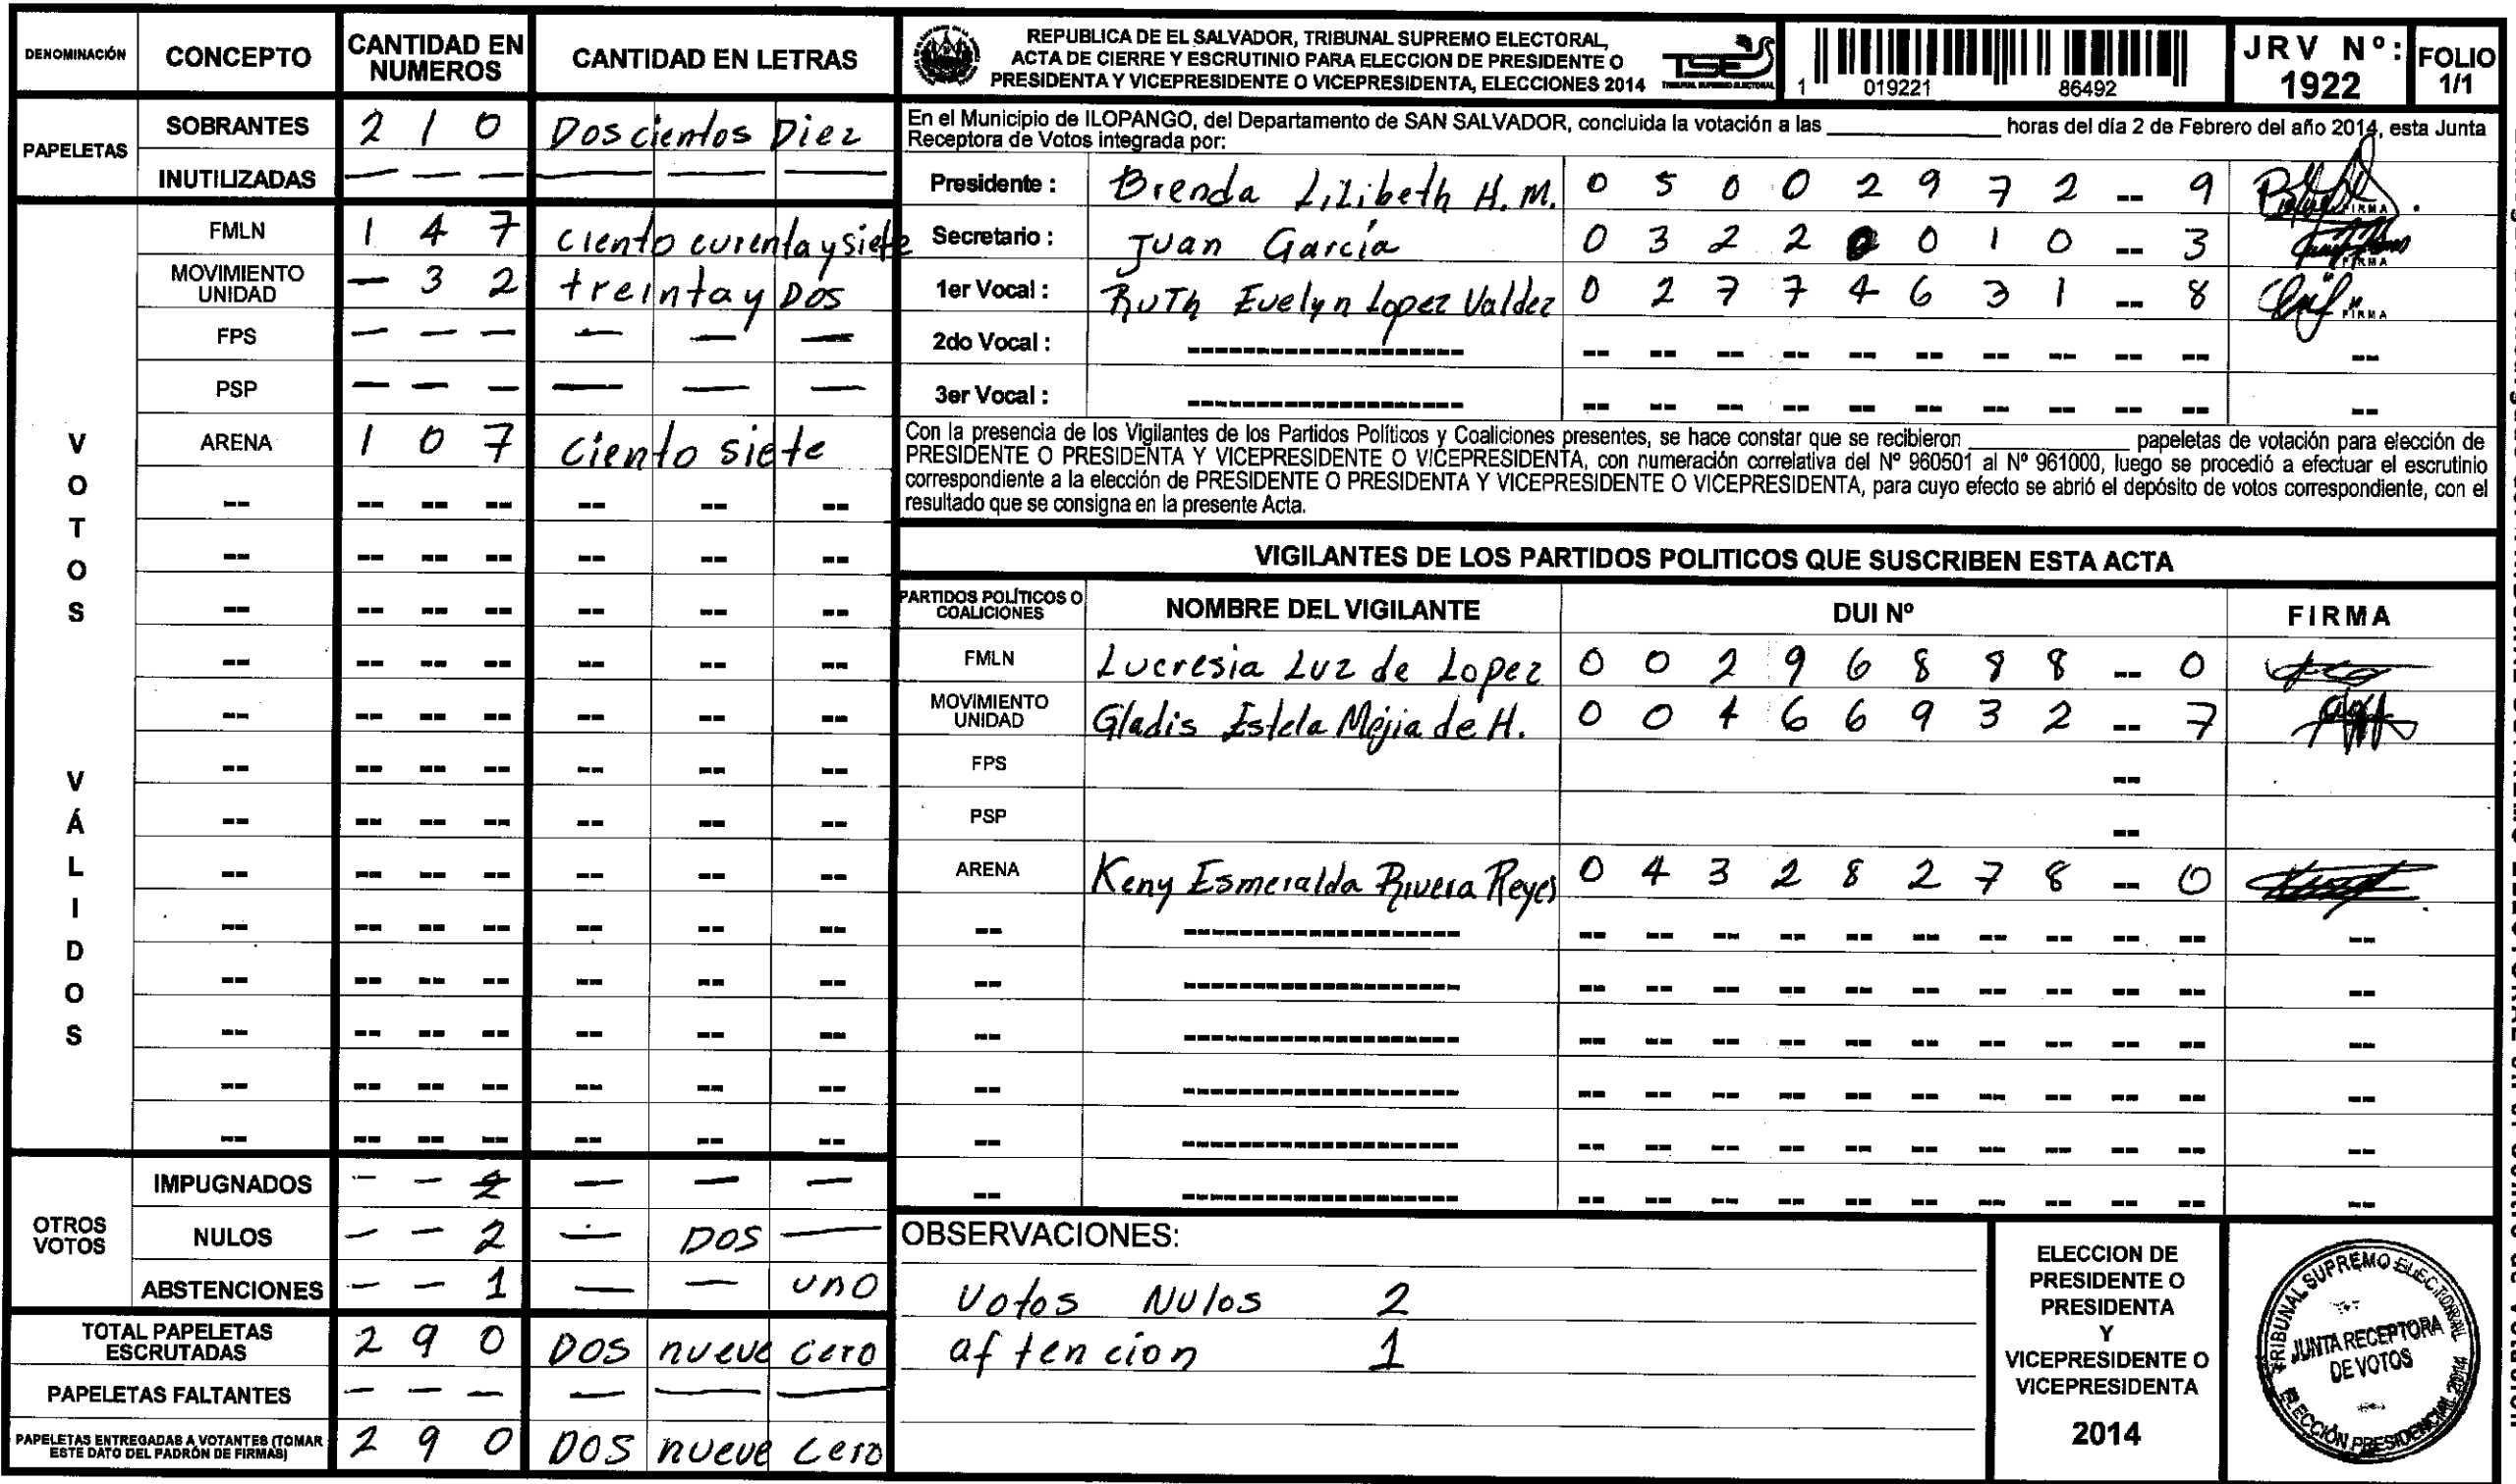 DENOMINACIÓN CONCEPTO CANTIDAD EN NUMEROS CANTIDAD EN LETRAS
PAPELETAS
SOBRANTES 2 1 0 Doscientos Diez
INUTILIZADAS — — — — — —
VOTOS VÁLIDOS
FMLN 1 4 7 ciento curenta y siete
MOVIMIENTO UNIDAD — 3 2 treinta y Dos
FPS — — — — — —
PSP — — — — — —
ARENA 1 0 7 ciento siete
-- -- -- -- -- -- --
-- -- -- -- -- -- --
-- -- -- -- -- -- --
-- -- -- -- -- -- --
-- -- -- -- -- -- --
-- -- -- -- -- -- --
-- -- -- -- -- -- --
-- -- -- -- -- -- --
-- -- -- -- -- -- --
-- -- -- -- -- -- --
-- -- -- -- -- -- --
-- -- -- -- -- -- --
-- -- -- -- -- -- --
OTROS VOTOS
IMPUGNADOS — — 2 — — —
NULOS — — 2 — DOS —
ABSTENCIONES — — 1 — — uno
TOTAL PAPELETAS ESCRUTADAS 2 9 0 DOS nueve cero
PAPELETAS FALTANTES — — — — — —
PAPELETAS ENTREGADAS A VOTANTES (TOMAR ESTE DATO DEL PADRÓN DE FIRMAS) 2 9 0 DOS nueve cero
REPUBLICA DE EL SALVADOR, TRIBUNAL SUPREMO ELECTORAL,
ACTA DE CIERRE Y ESCRUTINIO PARA ELECCION DE PRESIDENTE O
PRESIDENTA Y VICEPRESIDENTE O VICEPRESIDENTA, ELECCIONES 2014
TSE
TRIBUNAL SUPREMO ELECTORAL
1 019221 86492
JRV Nº: 1922
FOLIO 1/1
En el Municipio de ILOPANGO, del Departamento de SAN SALVADOR, concluida la votación a las ____ horas del día 2 de Febrero del año 2014, esta Junta
Receptora de Votos integrada por:
Presidente : Brenda Lilibeth H. M. 0 5 0 0 2 9 7 2 -- 9 FIRMA
Secretario : Juan García 0 3 2 2 0 0 1 0 -- 3 FIRMA
1er Vocal : Ruth Evelyn Lopez Valdez 0 2 7 7 4 6 3 1 -- 8 FIRMA
2do Vocal : ------------------ -- -- -- -- -- -- -- -- -- -- --
3er Vocal : ------------------ -- -- -- -- -- -- -- -- -- -- --
Con la presencia de los Vigilantes de los Partidos Políticos y Coaliciones presentes, se hace constar que se recibieron ____ papeletas de votación para elección de
PRESIDENTE O PRESIDENTA Y VICEPRESIDENTE O VICEPRESIDENTA, con numeración correlativa del Nº 960501 al Nº 961000, luego se procedió a efectuar el escrutinio
correspondiente a la elección de PRESIDENTE O PRESIDENTA Y VICEPRESIDENTE O VICEPRESIDENTA, para cuyo efecto se abrió el depósito de votos correspondiente, con el
resultado que se consigna en la presente Acta.
VIGILANTES DE LOS PARTIDOS POLITICOS QUE SUSCRIBEN ESTA ACTA
PARTIDOS POLÍTICOS O COALICIONES NOMBRE DEL VIGILANTE DUI Nº FIRMA
FMLN Lucresia Luz de Lopez 0 0 2 9 6 8 8 8 -- 0
MOVIMIENTO UNIDAD Gladis Estela Mejia de H. 0 0 4 6 6 9 3 2 -- 7
FPS --
PSP --
ARENA Keny Esmeralda Rivera Reyes 0 4 3 2 8 2 7 8 -- 0
-- ------------------ -- -- -- -- -- -- -- -- -- -- --
-- ------------------ -- -- -- -- -- -- -- -- -- -- --
-- ------------------ -- -- -- -- -- -- -- -- -- -- --
-- ------------------ -- -- -- -- -- -- -- -- -- -- --
-- ------------------ -- -- -- -- -- -- -- -- -- -- --
-- ------------------ -- -- -- -- -- -- -- -- -- -- --
OBSERVACIONES:
Votos Nulos 2
aftencion 1
ELECCION DE
PRESIDENTE O
PRESIDENTA
Y
VICEPRESIDENTE O
VICEPRESIDENTA
2014
TRIBUNAL SUPREMO ELECTORAL
JUNTA RECEPTORA
DE VOTOS
ELECCIÓN PRESIDENCIAL 2014